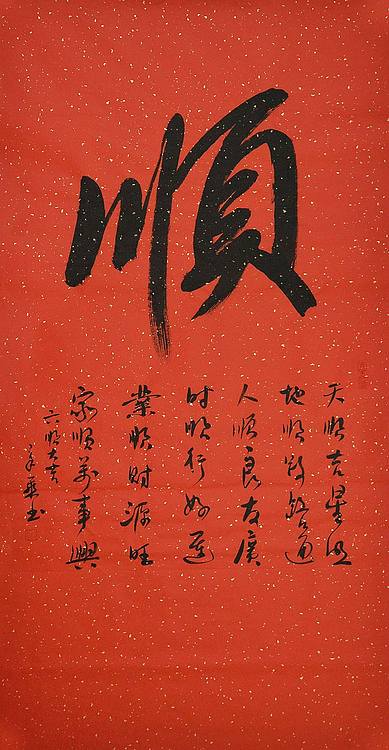 順
天順吉星照
地順路路通
人順良友廣
時順行好運
業順財源旺
家順萬事興
六順大吉
書